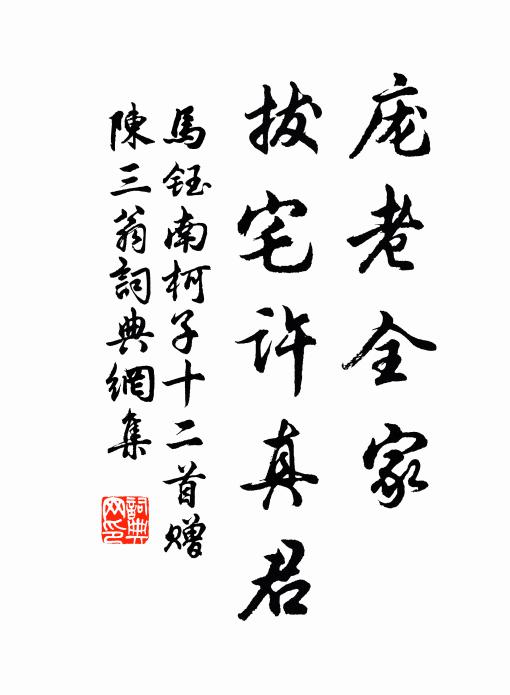 庞老全家
拔宅许真君
馬钰南柯子十二首赠
陳三翁詞典網集
詞典
网印